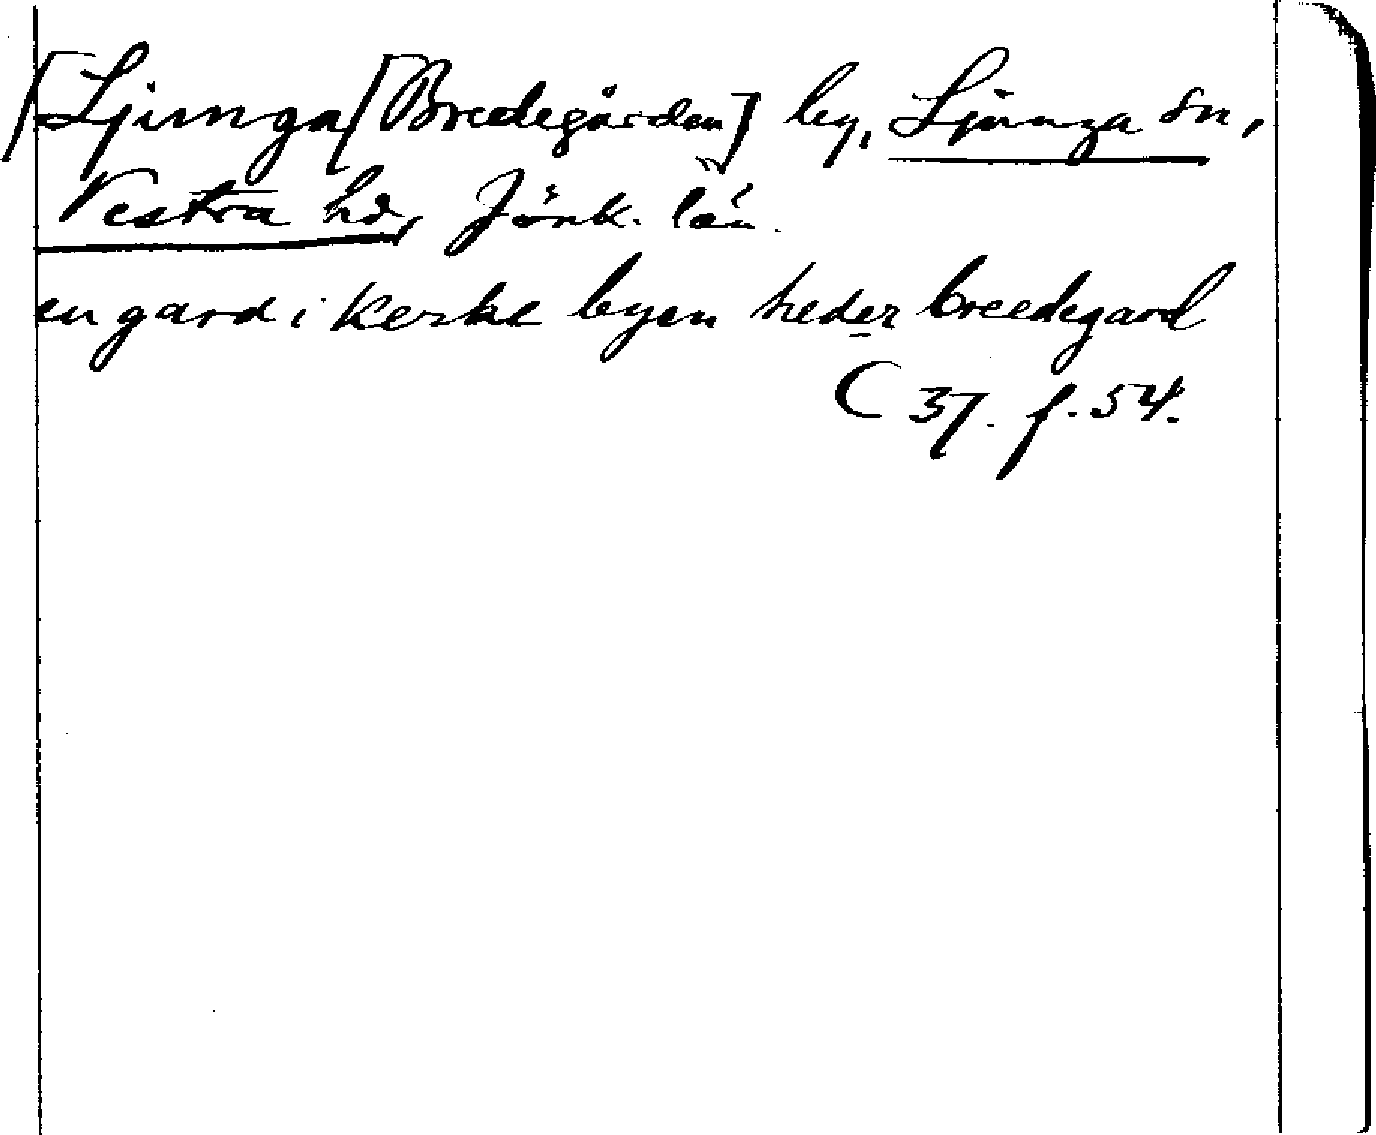 [Ljunga [Bredegården] by, Ljunga sn,
Vestra hd, Jönk. län.
en gard i kerke byen heder breedegard
C 37. f. 54.